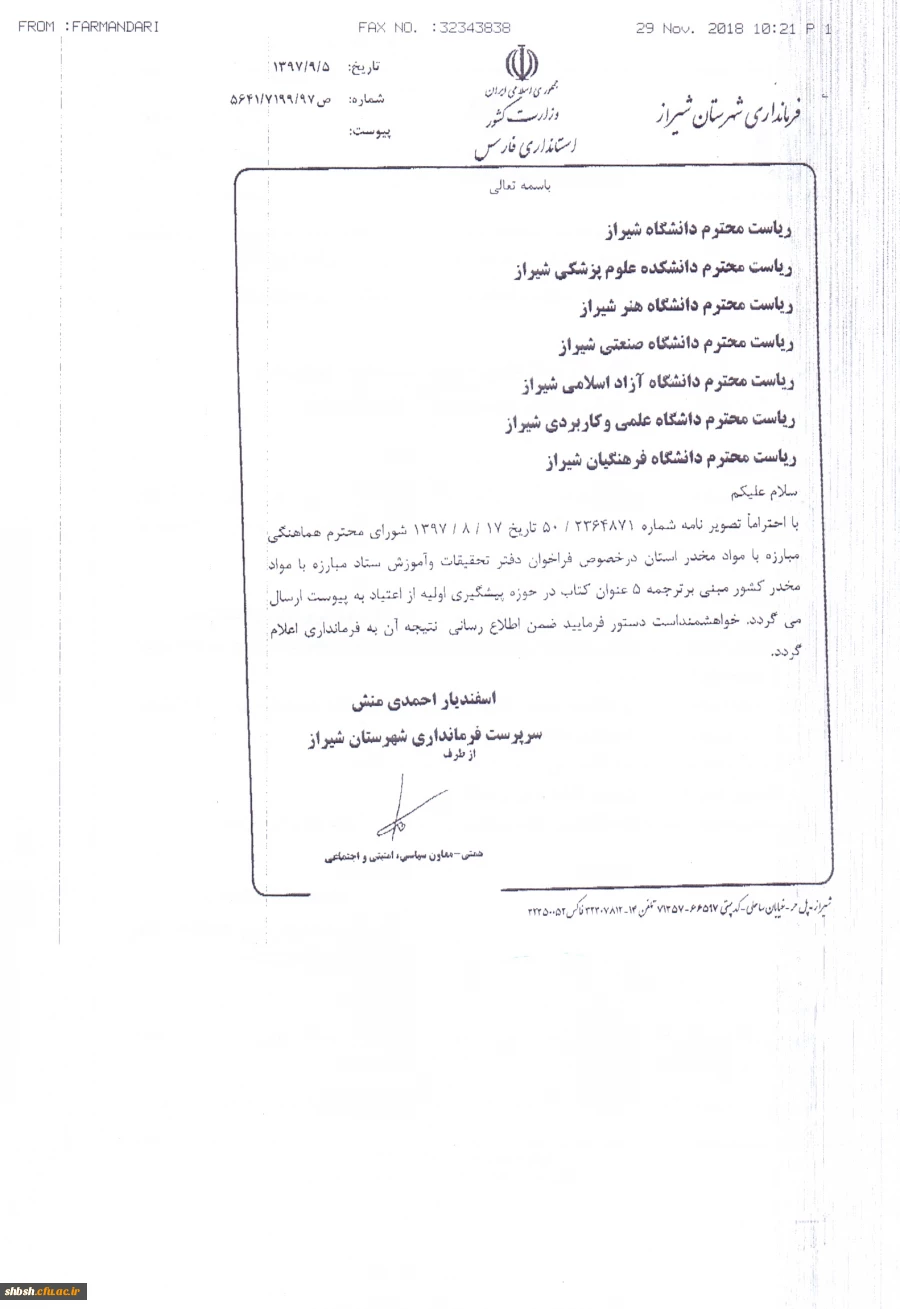 FROM :FARMANDARI FAX NO. :32343838 29 Nov. 2018 10:21 P 1
جمهوری اسلامی ایران
وزارت کشور
استانداری فارس
فرمانداری شهرستان شیراز
تاریخ: ۱۳۹۷/۹/۵
شماره: ص۵۶۴۱/۷۱۹۹/۹۷
پیوست:
باسمه تعالی
ریاست محترم دانشگاه شیراز
ریاست محترم دانشکده علوم پزشکی شیراز
ریاست محترم دانشگاه هنر شیراز
ریاست محترم دانشگاه صنعتی شیراز
ریاست محترم دانشگاه آزاد اسلامی شیراز
ریاست محترم داشگاه علمی وکاربردی شیراز
ریاست محترم دانشگاه فرهنگیان شیراز
سلام علیکم
با احتراماً تصویر نامه شماره ۲۳۶۴۸۷۱ / ۵۰ تاریخ ۱۷ / ۸ / ۱۳۹۷ شورای محترم هماهنگی
مبارزه با مواد مخدر استان درخصوص فراخوان دفتر تحقیقات وآموزش ستاد مبارزه با مواد
مخدر کشور مبنی برترجمه ۵ عنوان کتاب در حوزه پیشگیری اولیه از اعتیاد به پیوست ارسال
می گردد. خواهشمنداست دستور فرمایید ضمن اطلاع رسانی نتیجه آن به فرمانداری اعلام
گردد.
اسفندیار احمدی منش
سرپرست فرمانداری شهرستان شیراز
از طرف
همتی-معاون سیاسی، امنیتی و اجتماعی
شیراز-پل حر-خیابان ساحلی-کدپستی ۶۶۵۹۷-۷۱۳۵۷ تلفن ۱۴-۳۲۳۰۷۸۱۲ فاکس ۳۲۲۵۰۰۵۲
shbsh.cfu.ac.ir